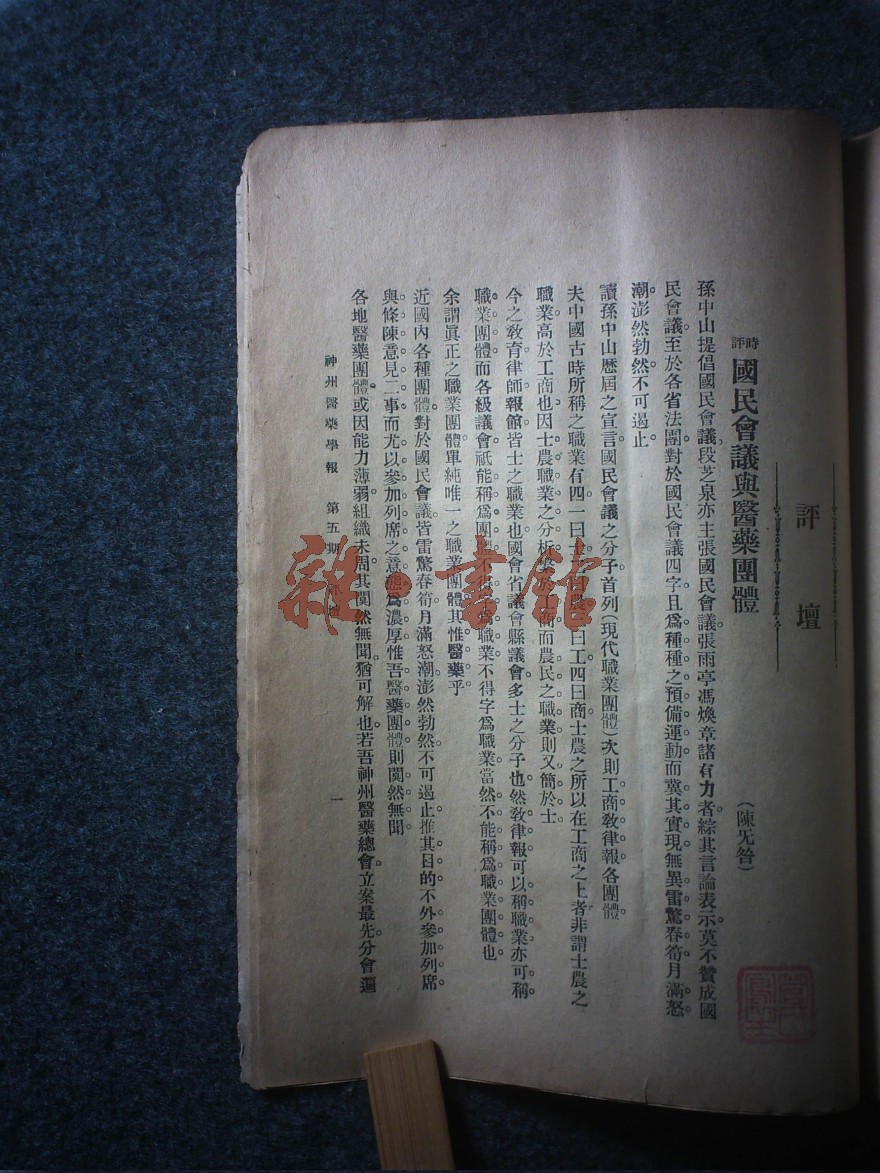 評壇
時評 國民會議與醫藥團體
（陳无咎）
孫中山提倡國民會議。段芝泉亦主張國民會議。張雨亭馮煥章諸有力者。綜其言論表示。莫不贊成國
民會議。至於各省法團。對於國民會議四字。且爲種種之預備運動。而冀其實現。無異雷驚春筍。月滿怒
潮。澎然勃然。不可遏止。
讀孫中山歷屆之宣言。國民會議之分子。首列（現代職業團體）次則工商教律報各團體。
夫中國古時所稱之職業有四。一曰士。二曰農。三曰工。四曰商。士農之所以在工商之上者。非謂士農之
職業高於工商也。因士農職業之分析。繁於工商。而農民之職業。則又簡於士。
今之教育律師報館。皆士之職業也。國會省議會縣議會。多士之分子也。然教律報可以稱職業。亦可稱
職業團體。而各級議會。祇能稱爲團體。不得字爲職業。不得字爲職業。當然不能稱爲職業團體也。
余謂眞正之職業團體。單純唯一之職業團體。其惟醫藥乎。
近國內各種團體。對於國民會議。皆雷驚春筍。月滿怒潮。澎然勃然。不可遏止。推其目的。不外參加列席。
與條陳意見二事。而尤以參加列席之意態。爲濃厚。惟吾醫藥團體。則闃然無聞。
各地醫藥團體。或因能力薄弱。組織未周。其闃然無聞。猶可解也。若吾神州醫藥總會。立案最先。分會遍
神州醫藥學報 第五期
一
雜·書館